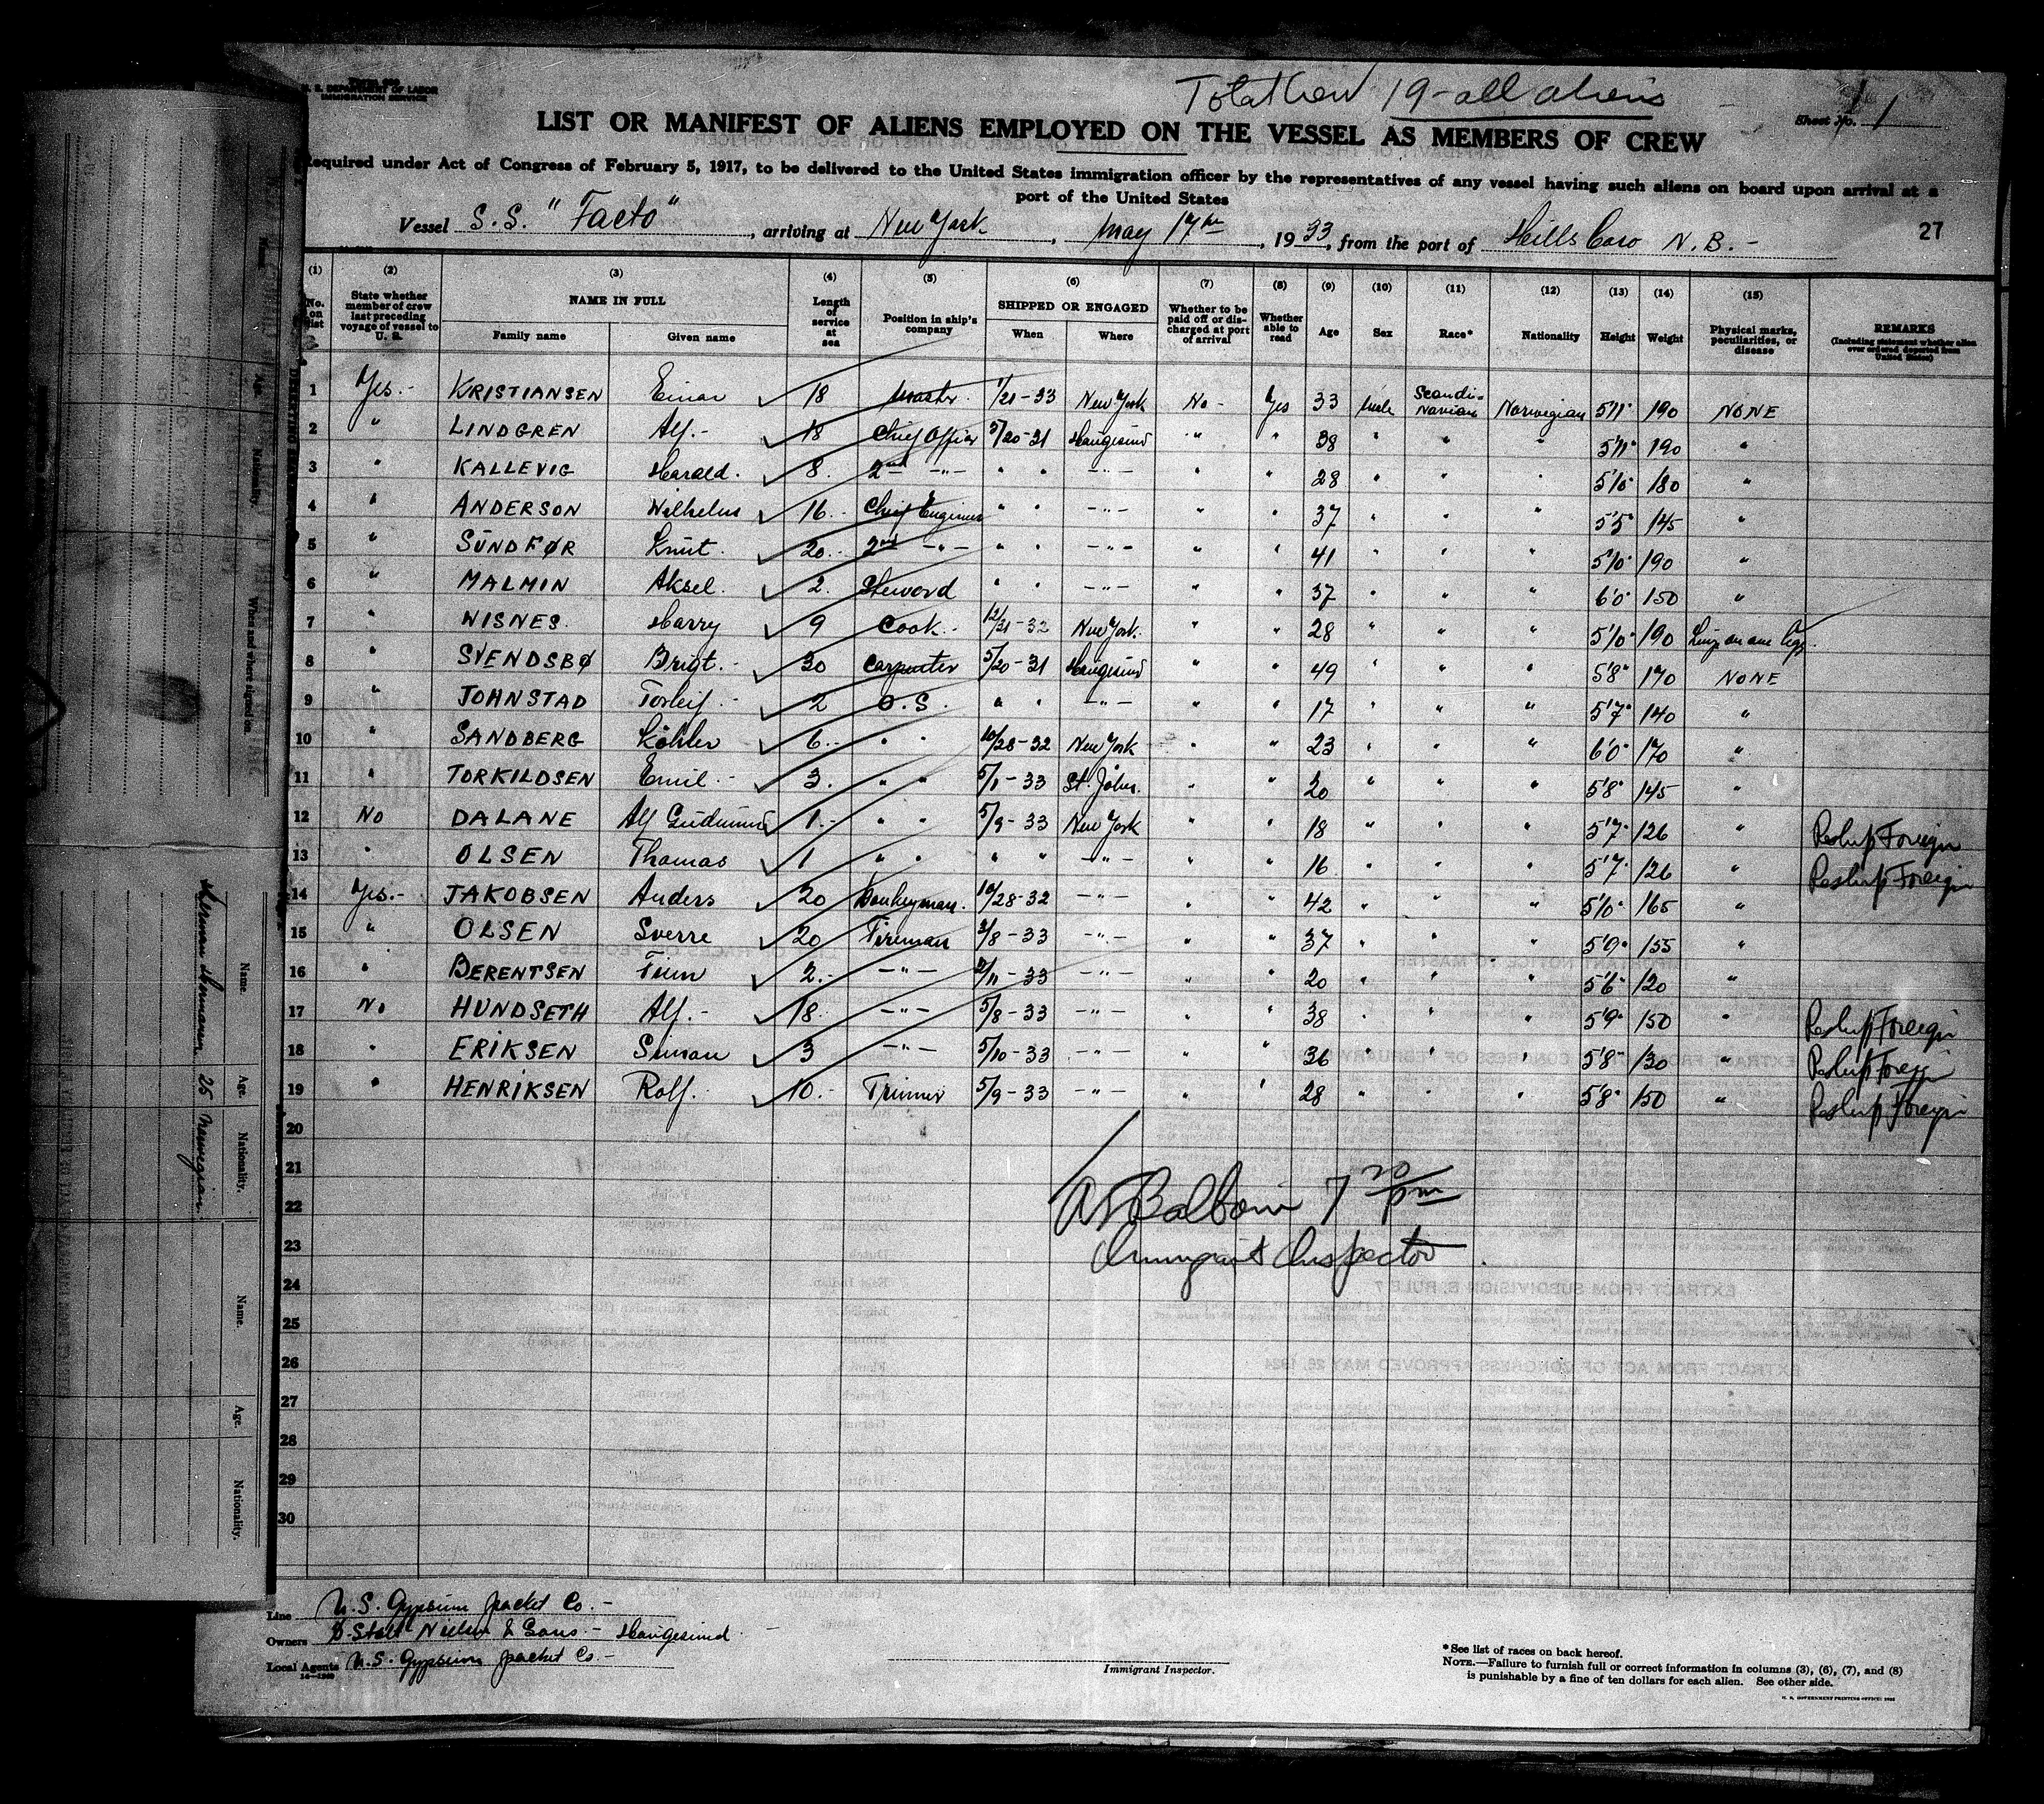 Total Crew 19 - all aliens
U. S. DEPARTMENT OF LABOR
IMMIGRATION SERVICE
Sheet No. 1
LIST OR MANIFEST OF ALIENS EMPLOYED ON THE VESSEL AS MEMBERS OF CREW
Required under Act of Congress of February 5, 1917, to be delivered to the United States immigration officer by the representatives of any vessel having such aliens on board upon arrival at a
port of the United States
Vessel S.S. "Facto", arriving at New York, May 17th, 1933, from the port of Hillsboro N.B.-
27
(1) (2) (3) (4) (5) (6) (7) (8) (9) (10) (11) (12) (13) (14) (15)
No. on list | State whether member of crew last preceding voyage of vessel to U. S. | NAME IN FULL Family name Given name | Length of service at sea | Position in ship's company | SHIPPED OR ENGAGED When Where | Whether to be paid off or discharged at port of arrival | Whether able to read | Age | Sex | Race* | Nationality | Height | Weight | Physical marks, peculiarities, or disease | REMARKS (Including statement whether alien ever ordered deported from United States)
1 Yes.- KRISTIANSEN Einar 18 Master. 1/21-33 New York No- Yes 33 Male Scandinavian Norwegian 5'11" 190 NONE
2 " LINDGREN Alf.- 18 Chief Officer 5/20-31 Haugesund " " 38 " " " 5'11" 190 "
3 " KALLEVIG Harald. 8. 2nd -"- " " -"- " " 28 " " " 5'10" 180 "
4 " ANDERSON Wilhelm 16.- Chief Engineer " " -"- " " 37 " " " 5'5" 145 "
5 " SUNDFØR Knut. 20.- 2nd -"- " " -"- " " 41 " " " 5'10" 190 "
6 " MALMIN Aksel. 2. Steward " " -"- " " 37 " " " 6'0" 150 "
7 " WISNES. Harry 9 Cook.- 12/21-32 New York. " " 28 " " " 5'10" 190
8 " SVENDSBØ Brigt.- 30 Carpenter 5/20-31 Haugesund " " 49 " " " 5'8" 170 NONE
9 " JOHNSTAD Torleif.- 2 O.S. " " -"- " " 17 " " " 5'7" 140 "
10 " SANDBERG Köhler 6.- " " 10/28-32 New York " " 23 " " " 6'0" 170 "
11 " TORKILDSEN Emil.- 3. " " 5/1-33 St. John. " " 20 " " " 5'8" 145 "
12 No DALANE Alf Gudmund 1.- " " 5/9-33 New York " " 18 " " " 5'7" 126 " Reship Foreign
13 " OLSEN Thomas 1 " " " " -"- " " 16 " " " 5'7" 126 " Reship Foreign
14 Yes.- JAKOBSEN Anders 20 Donkeyman. 10/28-32 -"- " " 42 " " " 5'10" 165 "
15 " OLSEN Sverre 20 Fireman 2/8-33 -"- " " 37 " " " 5'9" 155 "
16 " BERENTSEN Finn 2.- -"- 2/11-33 -"- " " 20 " " " 5'6" 120 "
17 No HUNDSETH Alf.- 18. -"- 5/8-33 -"- " " 38 " " " 5'9" 150 " Reship Foreign
18 " ERIKSEN Simon 3 -"- 5/10-33 -"- " " 36 " " " 5'8" 130 " Reship Foreign
19 " HENRIKSEN Rolf. 10.- Trimmer 5/9-33 -"- " " 28 " " " 5'8" 150 " Reship Foreign
20
21
22
23
24
25
26
27
28
29
30
7 20/pm
Immigrant Inspector
Line U.S. Gypsum Packet Co.-
Owners B. Stolt Nielsen & Sons.- Haugesund.
Local Agents U.S. Gypsum Packet Co-
Immigrant Inspector.
*See list of races on back hereof.
NOTE.—Failure to furnish full or correct information in columns (3), (6), (7), and (8)
is punishable by a fine of ten dollars for each alien. See other side.
U. S. GOVERNMENT PRINTING OFFICE: 1932
Name. Age. Nationality. When and where signed on.
Name. Age. Nationality.
Herman Hermansen 25 Norwegian.
Name. Age. Nationality.